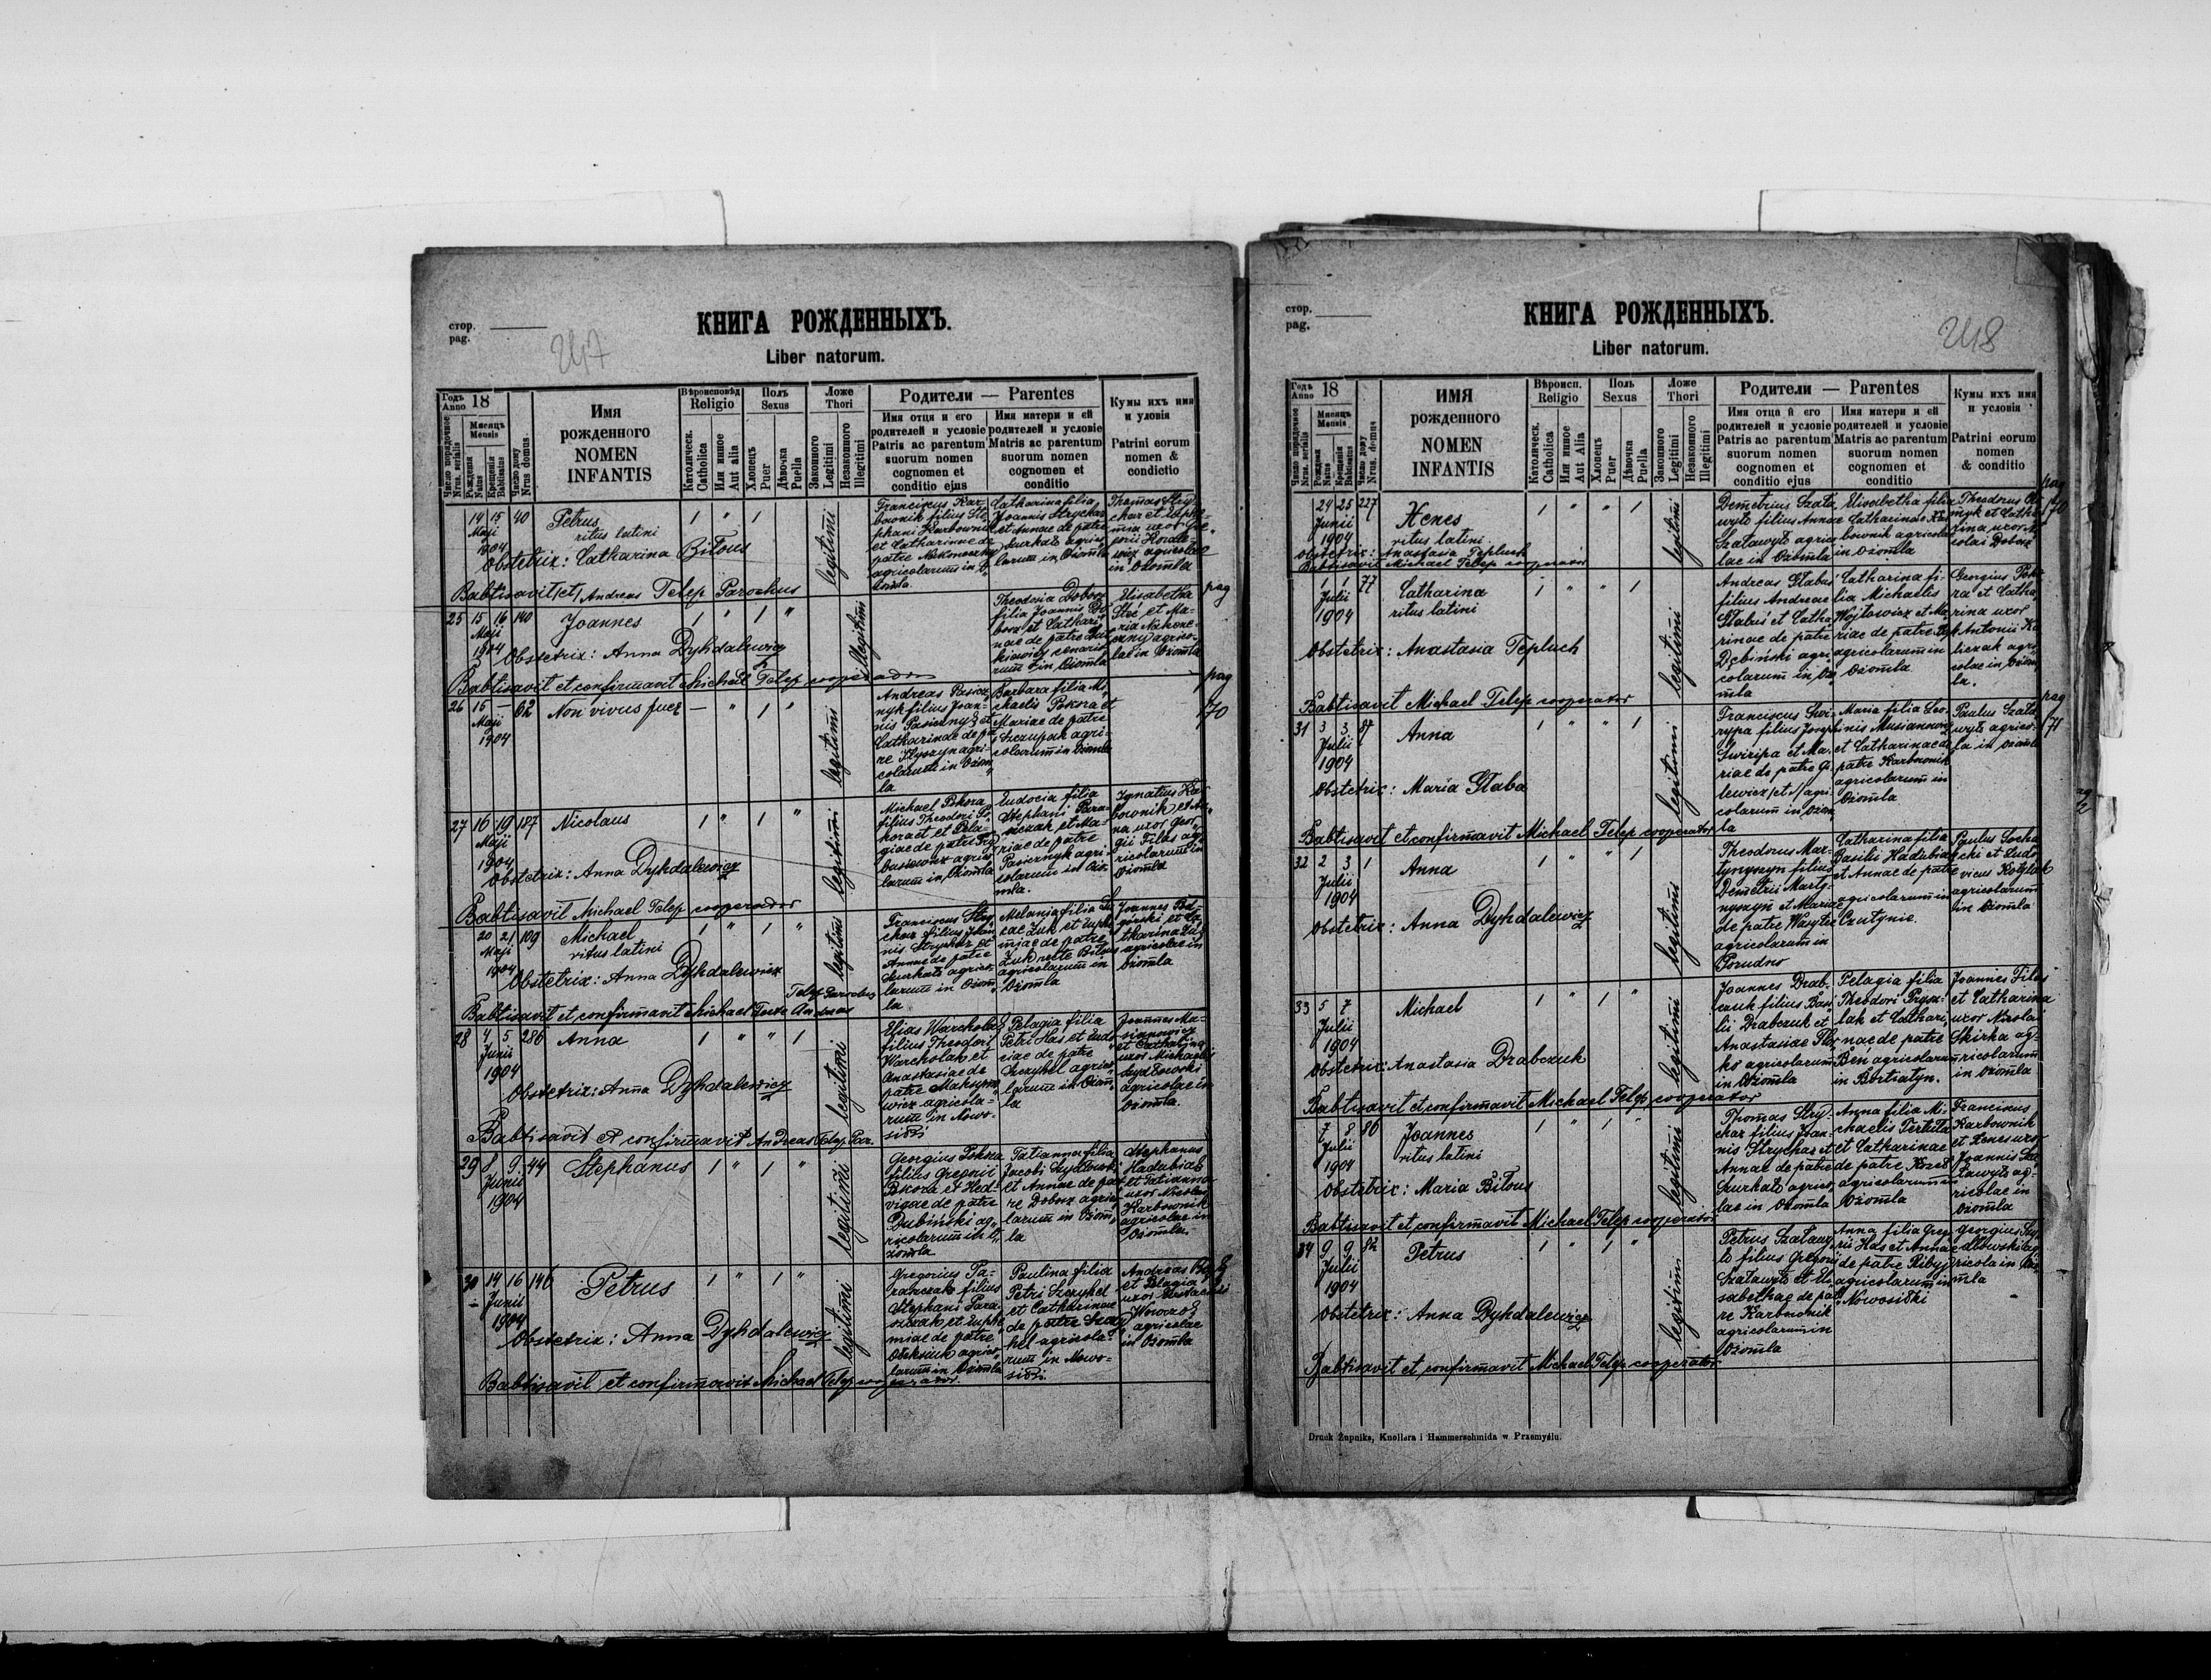 стор.
pag.
247
КНИГА РОЖДЕННЫХЪ.
Liber natorum.
Годъ
Anno 18
Число порядочное
Nrus. serialis
Мѣсяцъ
Mensis
Рождения
Natus
Крещения
Babtisatus
Число дому
Nrus domus.
Имя
рожденного
NOMEN
INFANTIS
Вѣроисповѣд
Religio
Католическ.
Catholica
Или инное
Aut alia
Полъ
Sexus
Хлопецъ
Puer
Дѣвочка
Puella
Ложе
Thori
Законного
Legitimi
Незаконного
Illegitimi
Родители — Parentes
Имя отця и его
родителей и условіе
Patris ac parentum
suorum nomen
cognomen et
conditio ejus
Имя матери и ей
родителей и условіе
Matris ac parentum
suorum nomen
cognomen et
conditio
Кумы ихъ имя
и уловія
Patrini eorum
nomen &
condictio
14 15 40 Petrus 1 " 1
Maji ritus latini
1904
Obstetrix: Catharina Bitous
legitimi
Franciscus Kar-
bownik filius Ste
phani Karbownik
et Catharinae de
patre
agricolarum in O
zomla
Catharina filia
Joannis Strychar
et Annae de patre
Szurkato agrico
larum in Ozomla
Thomas Stry
char et Euphe-
mia uxor
agricolae
in Ozomla
Babtisavit (et) Andreas Telep Parochus
pag
25 15 16 140 Joannes 1 " 1 "
Maji
1904
Obstetrix: Anna Dyhdalewicz
illegitimi
Theodosia Dobosz
filia Joannis Do
bosz et Cathari
nae de patre
rum in Ozomla
Elisabetha
et Ma-
ria
agrico-
lae in Ozomla
Babtisavit et confirmavit Michael Telep cooperador
pag
170
26 15 — 62 Non vivus puer — " 1 "
Maji
1904
legitimi
Andreas Pasicz
nyk filius Joan-
nis et
Catharinae de pa
tre agri-
colarum in Ozom
la
Barbara filia Mi
chaelis Pokora et
Mariae de patre
Szczupak agri-
colarum in Ozomla
27 16 19 187 Nicolaus 1 " 1 "
Maji
1904
Obstetrix: Anna Dyhdalewicz
legitimi
Michael Pokora
filius Theodori Po
kora et Pela-
giae de patre
agrico
larum in Ozomla
Eudocia filia
Stephani Para-
szczak et Ma-
riae de patre
Pasicznyk agri-
colarum in Ozo-
mla.
Ignatius Kar
bownik et An
na uxor Geor
gii Filas ag
ricolarum in
Ozomla
Babtisavit Michael Telep cooperador
20 21 109 Michael 1 " 1 "
Maji ritus latini
1904
Obstetrix: Anna Dyhdalewicz
legitimi
Franciscus Stry
char filius Joan
nis Strychar et
Annae de patre
Szurkato agrico
larum in Ozom
la
Melania filia Lu
cae Zuk et Euphe
miae de patre
Zuk recte Bitous
agricolarum in
Ozomla
Joannes
et Ca
tharina
agricolae in
Ozomla
Telep Parochus
Babtisavit et confirmavit Michael Andreas
28 4 5 286 Anna 1 " " 1
Junii
1904
Obstetrix: Anna Dyhdalewicz
legitimi
Elias Warcholak
filius Theodori
Warcholak et
Anastasiae de
patre Maksymo
wicz agricola-
rum in Nowo-
siolki
Pelagia filia
Petri Has et Eudo
ciae de patre
Szczyhel agrico
larum in Ozom
la
Joannes Mu-
sianowicz
et Catharina
uxor Michaelis
Szydlowski
agricolae in
Ozomla.
Babtisavit et confirmavit Andreas Telep Par.
29 8 9 44 Stephanus 1 " 1 "
Junii
1904
legitimi
Georgius Pokora
filius Gregorii
Pokora et Hed-
vigae de patre
Dubinski ag-
ricolarum in O
zomla
Tatianna filia
Jacobi Szydlowski
et Annae de pat
re Dobosz agrico
larum in Ozom
la
Stephanus
Hadubiak
et Tatianna
uxor Nicolai
Karbownik
agricolae in
Ozomla.
30 14 16 146 Petrus 1 " 1 "
Junii
1904
Obstetrix: Anna Dyhdalewicz
legitimi
Gregorius Pa-
raszczak filius
Stephani Para-
szczak et Euphe
miae de patre
Oleksiuk agrico
larum in Ozomla
Paulina filia
Petri Szczyhel
et Catharinae
de patre Szczy
hel agricola-
rum in Nowo-
siolki.
Andreas
et Pelagia
uxor
agricolae
in Ozomla
Babtisavit et confirmavit Michael Telep cooperador.
стор.
pag.
248
КНИГА РОЖДЕННЫХЪ.
Liber natorum.
Годъ
Anno 18
Число порядочное
Nrus. serialis
Мѣсяцъ
Mensis
Рождения
Natus
Крещения
Babtisatus
Число дому
Nrus. domus
ИМЯ
рожденного
NOMEN
INFANTIS
Вѣроисп.
Religio
Католическ.
Catholica
Или инное
Aut Alia
Полъ
Sexus
Хлопецъ
Puer
Дѣвочка
Puella
Ложе
Thori
Законного
Legitimi
Незаконного
Illegitimi
Родители — Parentes
Имя отца й его
родителей и условіе
Patris ac parentum
suorum nomen
cognomen et
conditio ejus
Имя матери и ей
родителей и условіе
Matris ac parentum
suorum nomen
cognomen et
conditio
Кумы ихъ имя
и условія
Patrini eorum
nomen
& conditio
pag
170
24 25 227 Xenes 1 " " 1
Junii ritus latini.
1904
Obstetrix: Anastasia Tepluch
legitimi
Demetrius Szala
wylo filius Annae
Szalawylo agrico
lae in Ozomla
Elisabetha filia
Catharinae Kar
bownik agricolae
in Ozomla
Theodorus
et Catha
rina uxor Ni
colai Dobosz
Babtisavit Michael Telep cooperador
1 1 77 Catharina 1 " " 1
Julii
1904 ritus latini
Obstetrix: Anastasia Tepluch
legitimi
Andreas Slabus
filius Andreae
Slabus et Catha
rinae de patre
Dębiński agri
colarum in Ozo
mla
Catharina fi-
lia Michaelis
Wojtowicz et Ma
riae de patre
agricolarum in
Ozomla
Georgius Poko
ra et Catha
rina uxor
Antonii Ka
liczak agri
colae in Ozom
la.
Babtisavit Michael Telep cooperator
pag
171
31 3 3 87 Anna 1 " " 1
Julii
1904
Obstetrix: Maria Slaba
legitimi
Franciscus Swi-
rypa filius Josephi
Swiripa et Ma-
riae de patre
agri-
colarum in Ozom
la
Maria filia Leo-
nis Musianowicz
et Catharinae de
patre Karbownik
agricolarum in
Ozomla
Paulus Szala
wylo agrico-
la in Ozomla
Babtisavit et confirmavit Michael Telep cooperator
32 2 3 1 Anna 1 " " 1
Julii
1904
Obstetrix: Anna Dyhdalewicz
legitimi
Theodorus Mar-
tynyszyn filius
Demetrii Marty-
nyszyn et Mariae
de patre
agricolarum in
Porudno
Catharina filia
Basilii Hadubiak
et Annae de patre
agricolarum in
Czutynie.
Paulus Socha
cki et Ludo
vicus
agricolarum
in Ozomla
33 5 7 Michael 1 " 1 "
Julii
1904
Obstetrix: Anastasia Drabczuk
legitimi
Joannes Drab-
czuk filius Basi
lii Drabczuk et
Anastasiae
agricolarum
in Ozomla
Pelagia filia
Theodori
et Cathari
nae de patre
Beń agricolarum
in Bortiatyn.
Joannes Filas
et Catharina
uxor Nicolai
Skirka ag-
ricolarum
in Ozomla
Babtisavit et confirmavit Michael Telep cooperator
7 8 86 Joannes 1 " 1 "
Julii ritus latini
1904
Obstetrix: Maria Bitous
legitimi
Thomas Stry-
char filius Joan-
nis Strychar et
Annae de patre
Szurkato agrico
lae in Ozomla
Anna filia Mi-
chaelis Tertula
et Catharinae
de patre Kozel
agricolarum in
Ozomla
Franciscus
Karbownik
et Xenes uxor
Joannis Sza
lawylo ag-
ricolae in
Ozomla
Babtisavit et confirmavit Michael Telep cooperator
34 9 9 82 Petrus 1 " 1 "
Julii
1904
Obstetrix: Anna Dyhdalewicz
legitimi
Petrus Szalawy
lo filius Gregorii
Szalawylo et Eli
sabethae de pat
re Karbownik
agricolarum in
Ozomla
Anna filia Grego
rii Has et Annae
de patre
agricolarum in
Nowosiolki
Georgius Szy
dlowski ag
ricola in Ozo
mla
Babtisavit et confirmavit Michael Telep cooperator
Druck Żupnika, Knollera i Hammerschmida w Przemyślu.